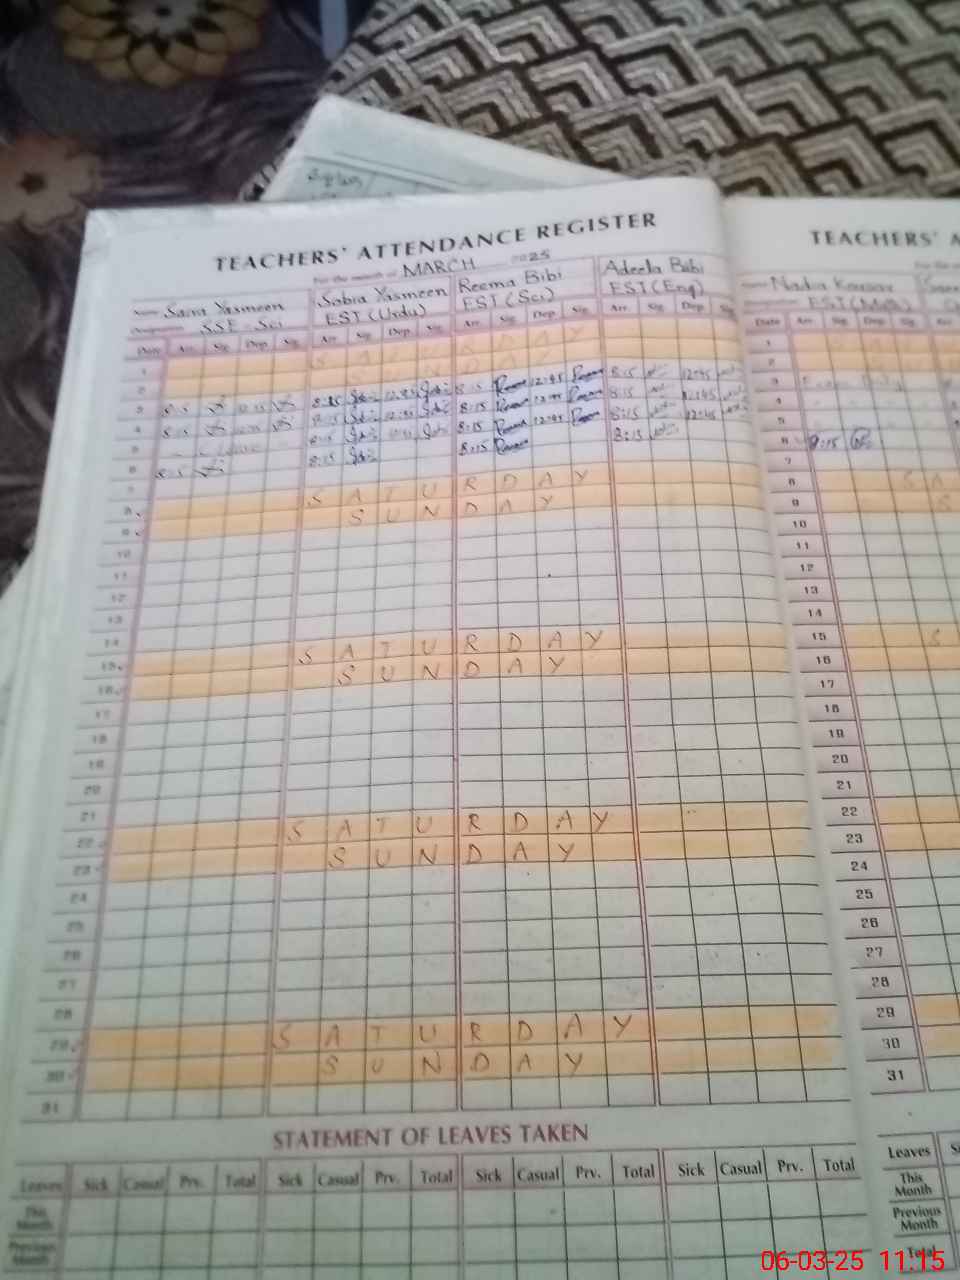 TEACHERS' ATTENDANCE REGISTER
For the month of MARCH 2025
Name Saira Yasmeen Sobia Yasmeen Reema Bibi Adeela Bibi
SSE-Sci EST (Urdu) EST (Sci) EST (Eng)
Date Arr Sig Dep Sig Arr Sig Dep Sig Arr Sig Dep Sig Arr Sig Dep Sig
1 SATURDAY
2 SUNDAY
3 8:15 8:15 12:45 8:15 12:45 8:15 12:45
4 8:15 8:15 12:45 8:15 12:45 8:15 12:45
5 8:15 8:15 12:45 8:15 12:45
6 8:15 8:15 8:15 8:15
7
8 SATURDAY
9 SUNDAY
10
11
12
13
14
15 SATURDAY
16 SUNDAY
17
18
19
20
21
22 SATURDAY
23 SUNDAY
24
25
26
27
28
29 SATURDAY
30 SUNDAY
31
STATEMENT OF LEAVES TAKEN
Leaves Sick Casual Prv. Total Sick Casual Prv. Total Sick Casual Prv. Total Sick Casual Prv. Total
This Month
Previous Month
TEACHERS' A
Nadia Kousar
EST (Math)
Date Arr Sig Dep Sig Arr
1
2
3
4
5
6 8:15
7
8 S A
9 S
10
11
12
13
14
15 S
16
17
18
19
20
21
22
23
24
25
26
27
28
29
30
31
Leaves
This Month
Previous Month
Total
06-03-25 11:15